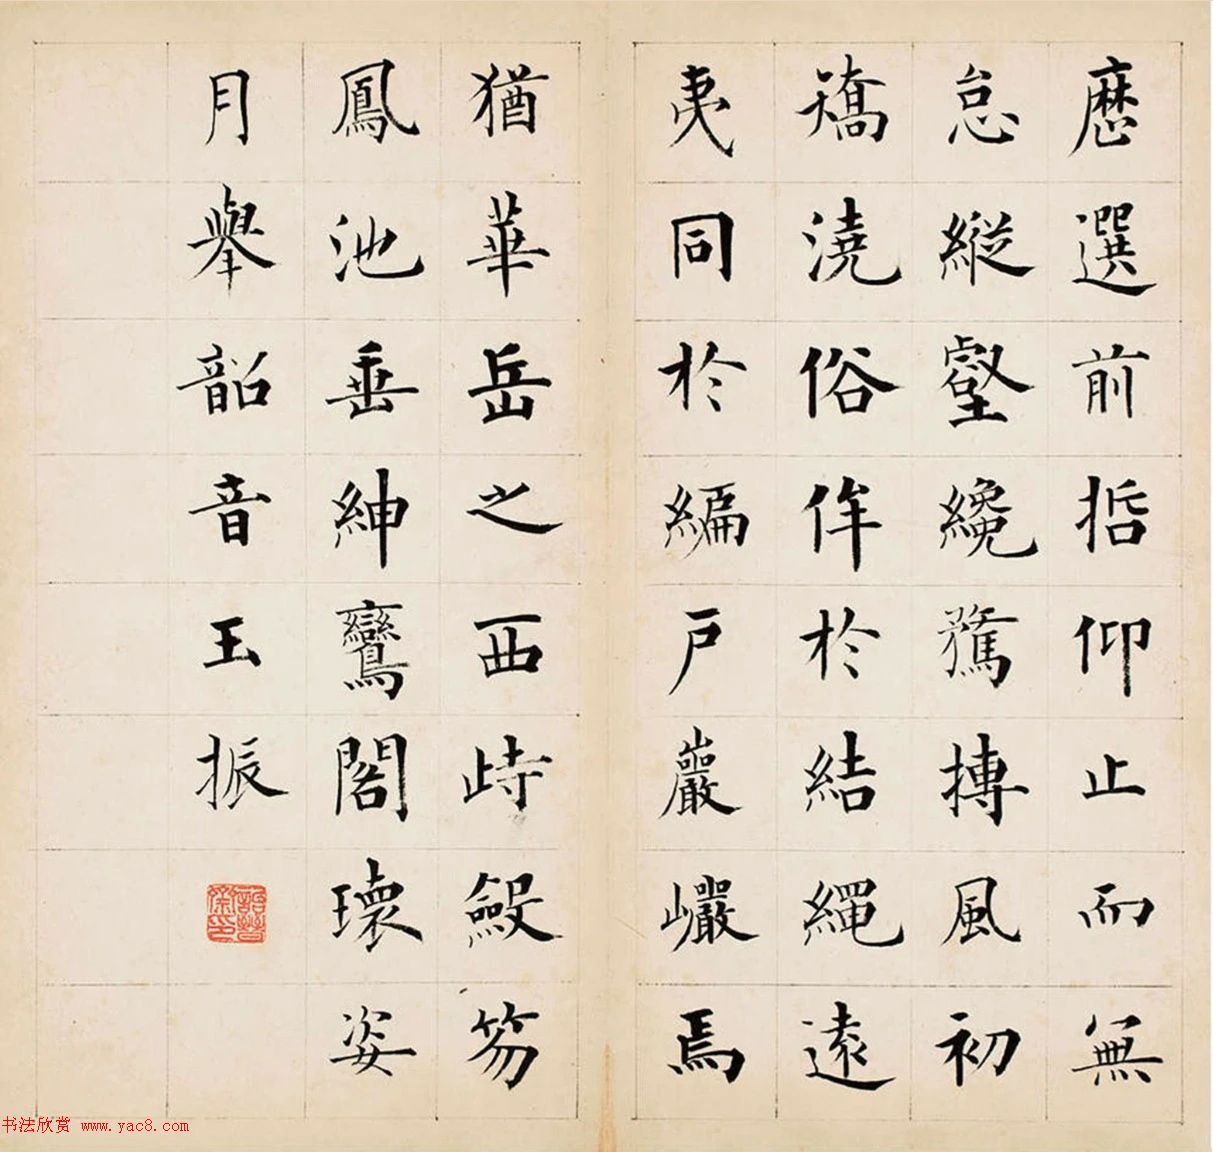 厯選前哲仰止而無
怠縱壑纔騖摶風初
矯澆俗侔於結繩遠
夷同於編戶巖巖焉
猶華岳之西峙斂笏
鳳池垂紳鸞閣瓌姿
月舉韶音玉振
书法欣赏 www.yac8.com